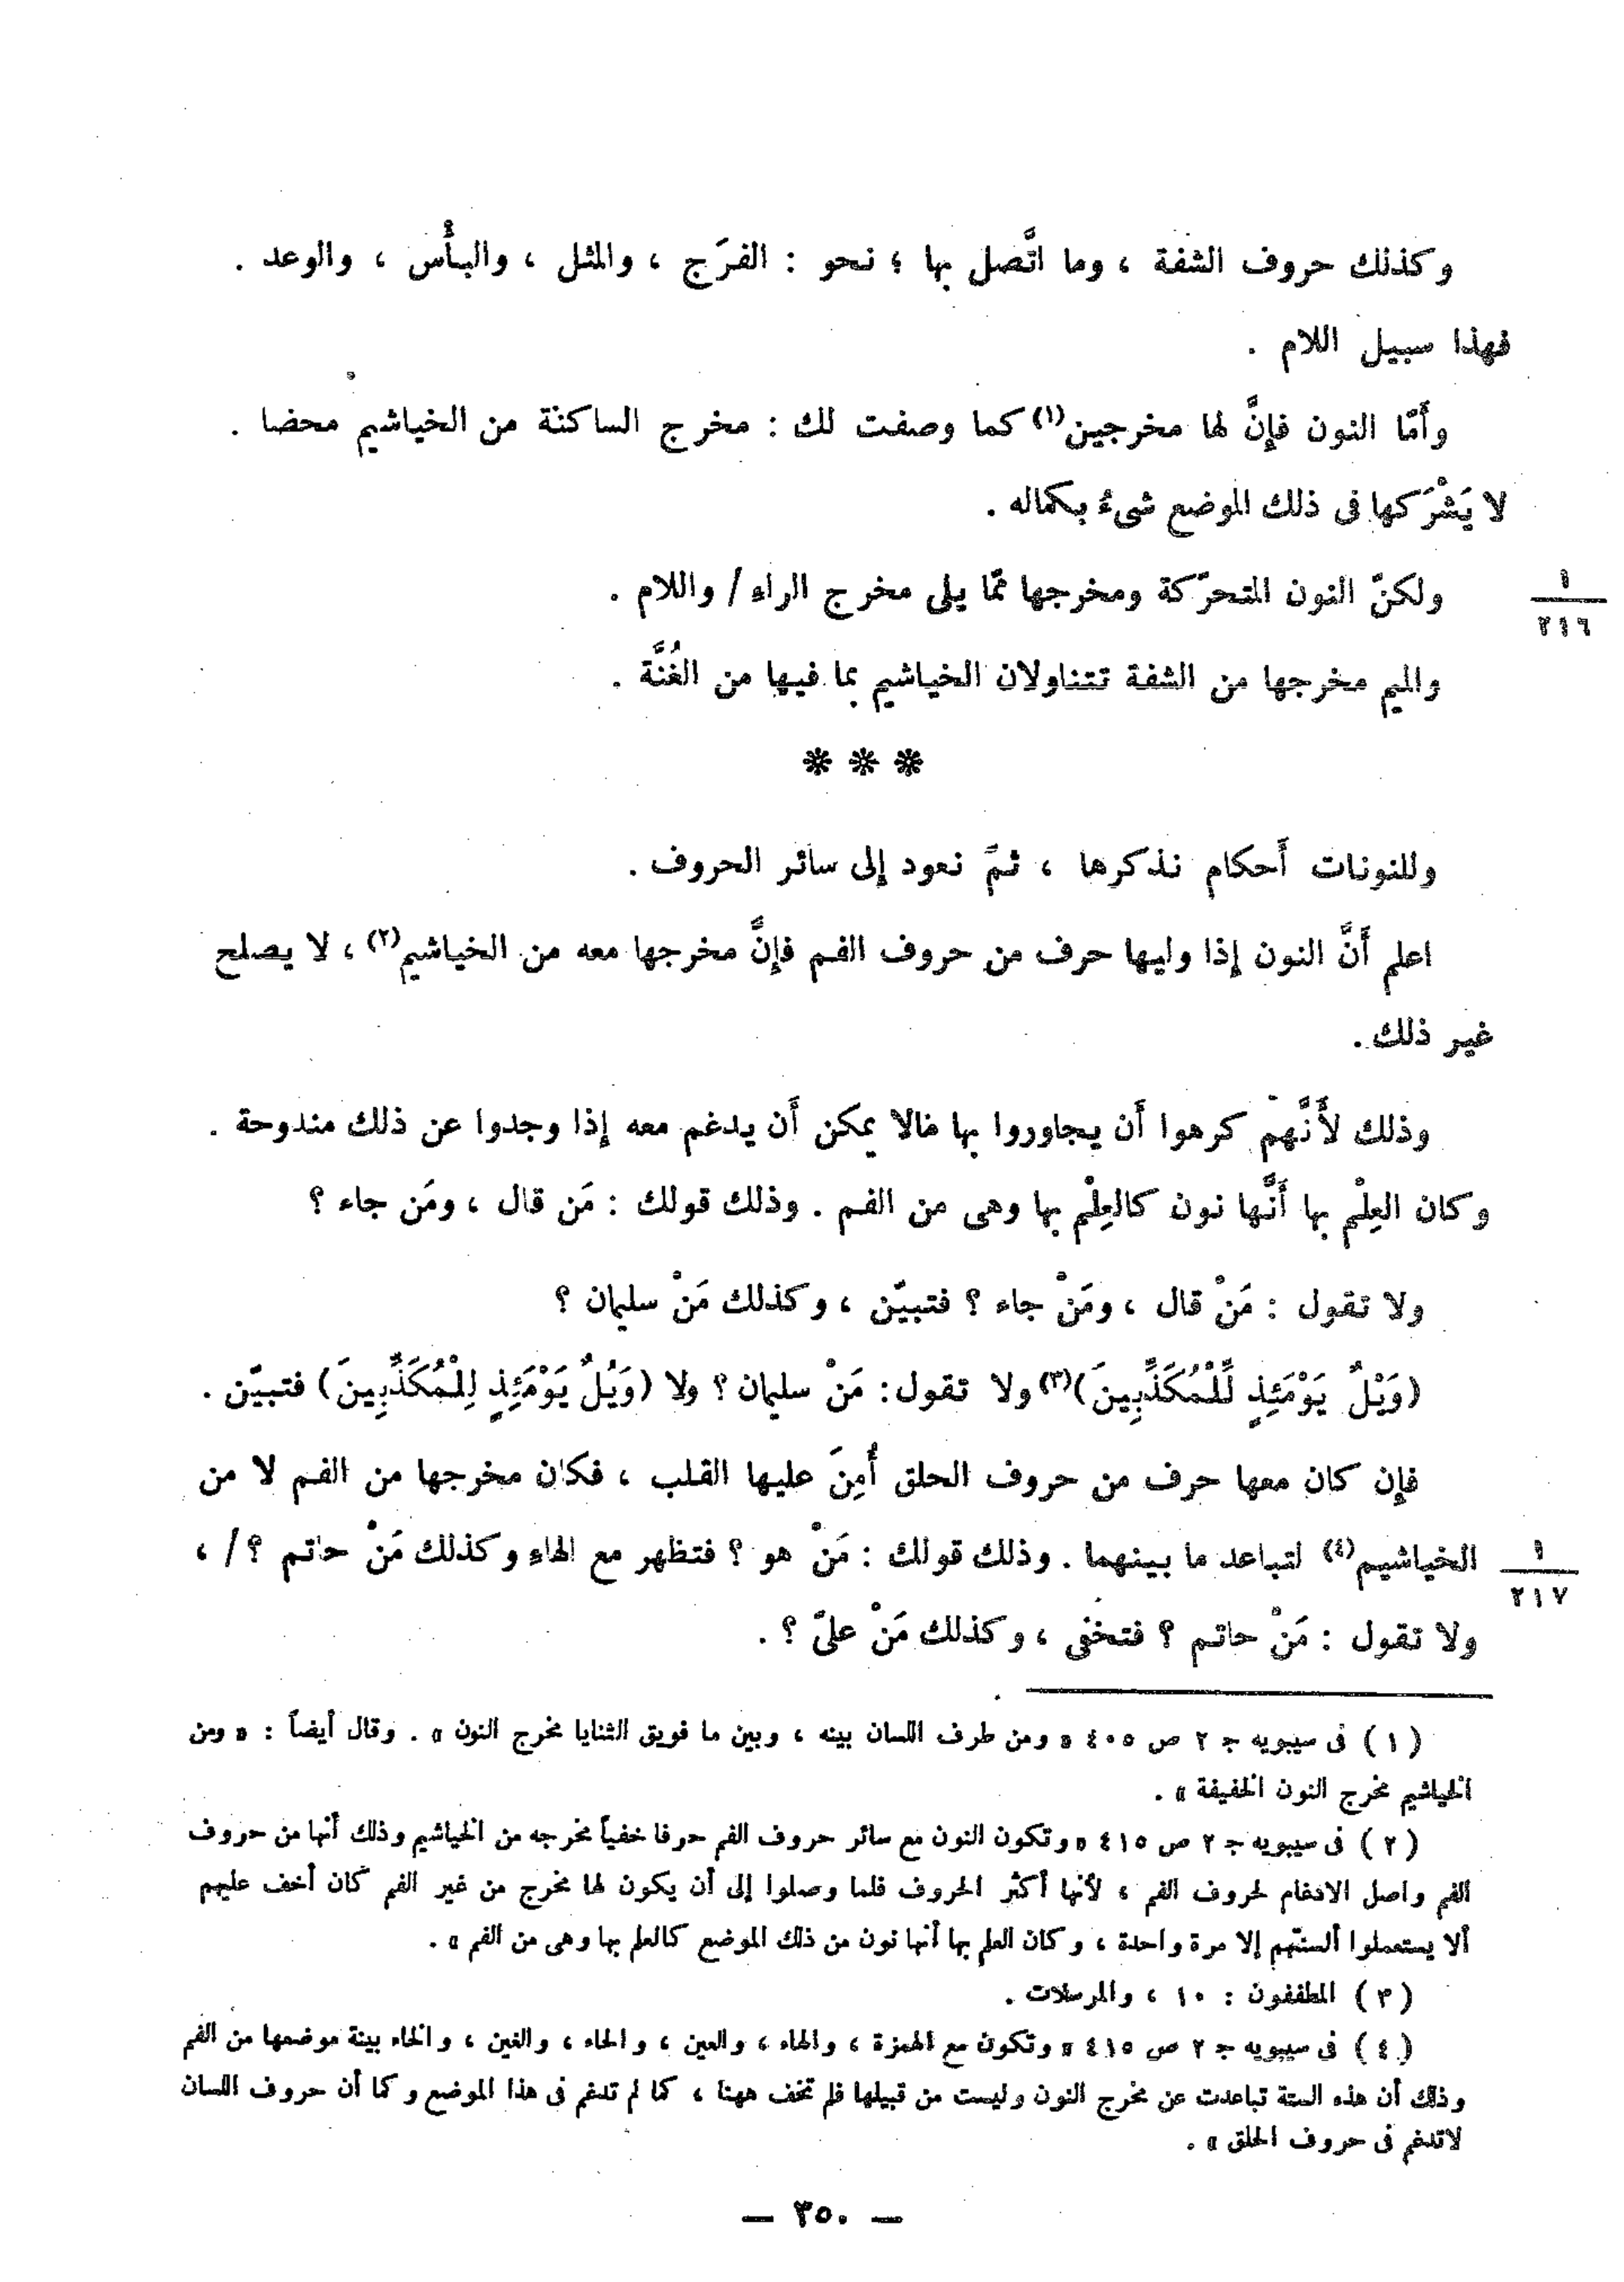 وكذلك حروف الشفة ، وما اتَّصل بها ؛ نحو : الفرَج ، والمثل ، والبأْس ، والوعد .
فهذا سبيل اللام .
وأَمّا النون فإنَّ لها مخرجين(١) كما وصفت لك : مخرج الساكنة من الخياشيم محضا .
لا يَشْرَكها فى ذلك الموضع شىءٌ بكماله .
ولكنّ النون المتحرّكة ومخرجها ممّا يلى مخرج الراءِ / واللام .
١
٢١٦
والميم مخرجها من الشفة تتناولان الخياشيم بما فيها من الغُنَّة .
* * *
وللنونات أَحكام نذكرها ، ثمّ نعود إلى سائر الحروف .
اعلم أَنَّ النون إذا وليها حرف من حروف الفم فإنَّ مخرجها معه من الخياشيم(٢) ، لا يصلح
غير ذلك .
وذلك لأَنَّهم كرهوا أَن يجاوروا بها مالا يمكن أَن يدغم معه إذا وجدوا عن ذلك مندوحة .
وكان العِلْم بها أَنَّها نون كالعِلْم بها وهى من الفم . وذلك قولك : مَن قال ، ومَن جاء ؟
ولا تقول : مَنْ قال ، ومَنْ جاء ؟ فتبيّن ، وكذلك مَنْ سليمان ؟
(وَيْلٌ يَوْمَئِذٍ لِّلْمُكَذِّبِينَ)(٣) ولا تقول : مَنْ سليمان ؟ ولا (وَيْلٌ يَوْمَئِذٍ لِلْمُكَذِّبِينَ) فتبيّن .
فإن كان معها حرف من حروف الحلق أُمِنَ عليها القلب ، فكان مخرجها من الفم لا من
الخياشيم(٤) لتباعد ما بينهما . وذلك قولك : مَنْ هو ؟ فتظهر مع الهاءِ وكذلك مَنْ حاتم ؟ / ،
١
٢١٧
ولا تقول : مَنْ حاتم ؟ فتخفى ، وكذلك مَنْ علىّ ؟ .
(١) فى سيبويه ج ٢ ص ٤٠٥ « ومن طرف اللسان بينه ، وبين ما فويق الثنايا مخرج النون » . وقال أيضاً : « ومن
الخياشيم مخرج النون الخفيفة » .
(٢) فى سيبويه ج ٢ ص ٤١٥ « وتكون النون مع سائر حروف الفم حرفا خفياً مخرجه من الخياشيم وذلك أنها من حروف
الفم واصل الادغام لحروف الفم ، لأنها أكثر الحروف فلما وصلوا إلى أن يكون لها مخرج من غير الفم كان أخف عليهم
ألا يستعملوا ألسنتهم إلا مرة واحدة ، وكان العلم بها أنها نون من ذلك الموضع كالعلم بها وهى من الفم » .
(٣) المطففون : ١٠ ، والمرسلات .
(٤) فى سيبويه ج ٢ ص ٤١٥ « وتكون مع الهمزة ، والهاء ، والعين ، والحاء ، والغين ، والخاء بينة موضعها من الفم
وذلك أن هذه الستة تباعدت عن مخرج النون وليست من قبيلها فلم تخف ههنا ، كما لم تدغم فى هذا الموضع وكما أن حروف اللسان
لاتدغم فى حروف الحلق » .
— ٣٥٠ —